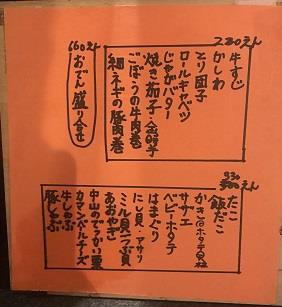 280えん
牛すじ
かしわ
エリ団子
ロールキャベツ
じゃがバター
焼き茄子
ごぼうの牛肉巻
細ネギの豚肉巻
660えん
おでん盛り合せ
930
えん
たこ
飯だこ
サザエ
ベビーホタテ
はまぐり
にし貝・アサリ
ミル貝・つぶ貝
あおやぎ
中山のでっかい栗
カマンベールチーズ
牛しゃぶ
豚しゃぶ